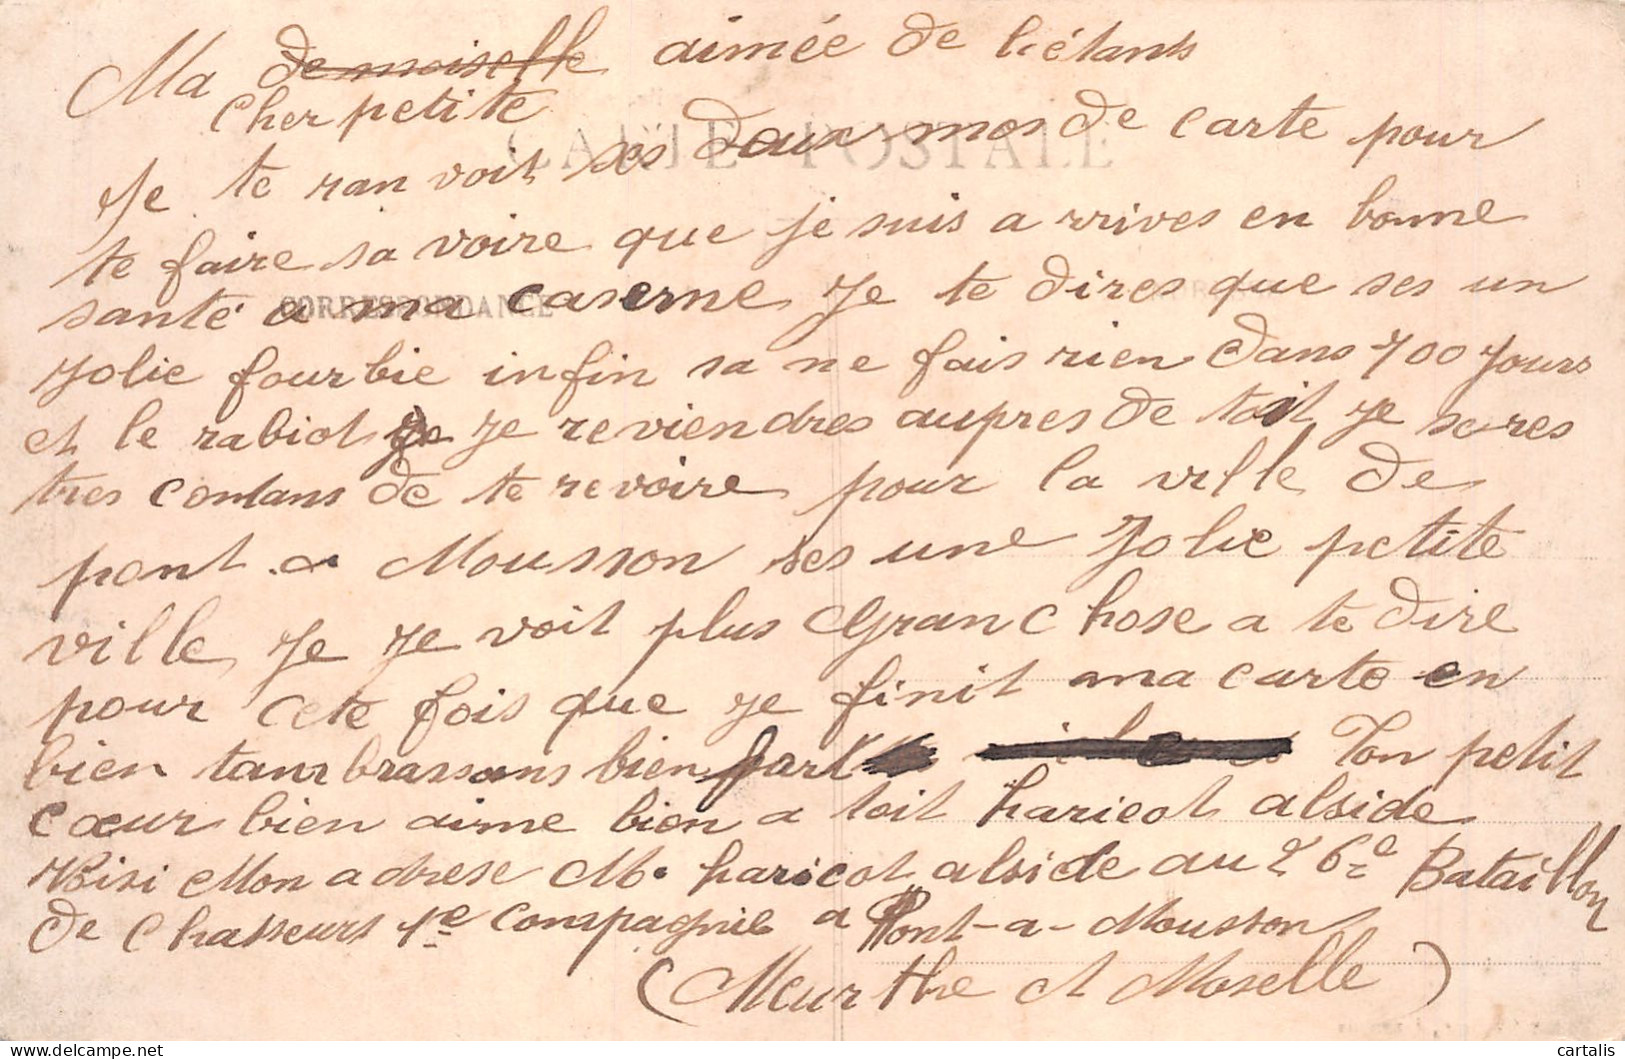 Ma demoiselle aimée de
Cher petite
CARTE POSTALE
Je te ran voit ses daux mos de carte pour
te faire sa voire que je suis a rrives en bonne
CORRESPONDANCE
santé a ma caserne Je te dires que ses un
Jolie fourbie infin sa ne fais rien dans 700 Jours
et le rabiot Je Je reviendres aupres de toit Je seres
tres contans de te revoire pour la ville de
pont a Mousson ses une Jolie petite
ville Je Je voit plus Granc hose a te dire
pour cete fois que Je finit ma carte en
bien tam brassans bien fort Ton petit
cœur bien aime bien a toit haricot alside
Voisi Mon adrese M. haricot alside au 26e Bataillon
de Chasseurs 1e compagnie a Pont-a-Mousson
(Meurthe et Moselle)
cartalis